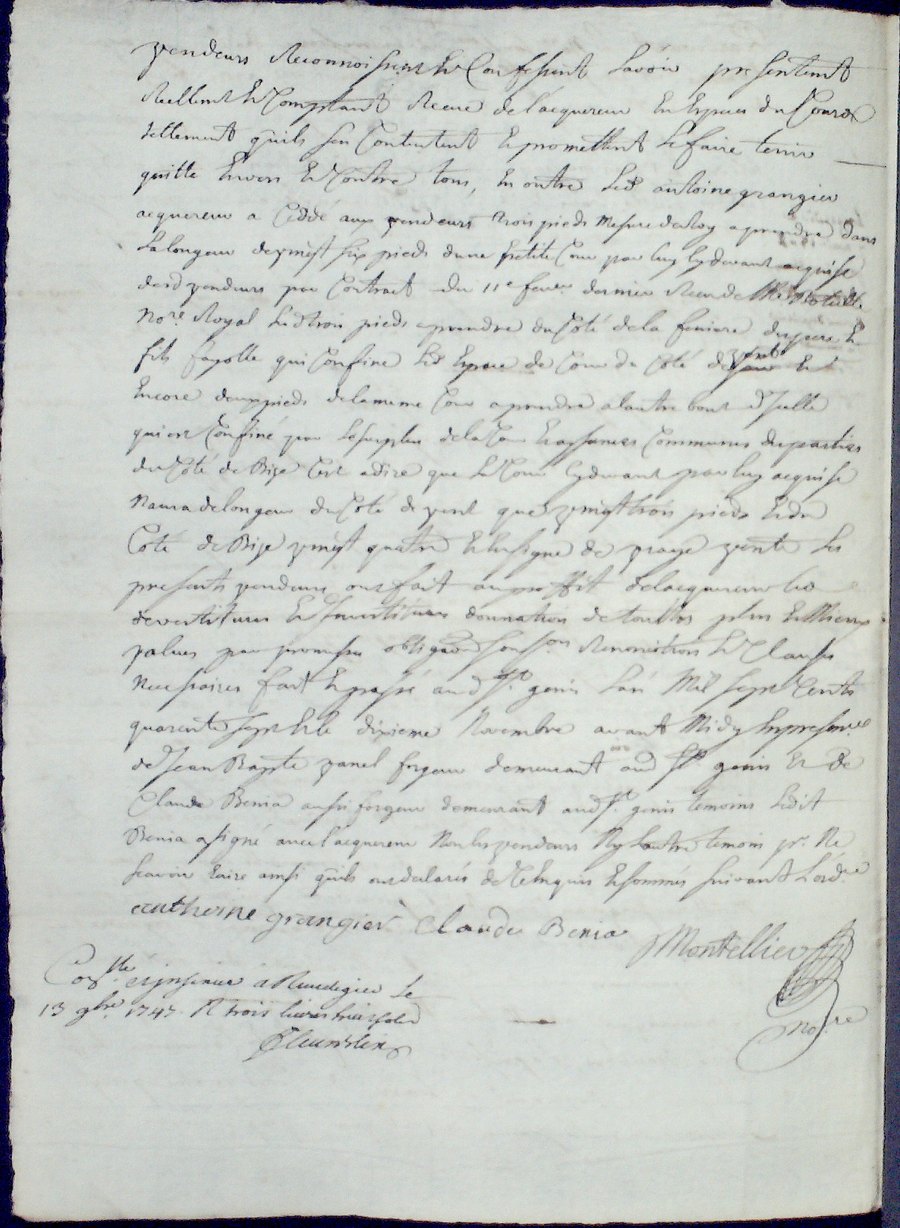 vendeurs Reconnoissent Et Confessent davoir presentemt
Rellemt Et Comptant Receue de lacquereur En Especes du Cours
tellement quils sen Contentent Et promettent Le faire tenir
quitte Envers Et Contre tous, En outre Led antoine grangier
acquereur a Ceddé aux vendeurs trois pieds mesure de Roy a prendre dans
La longeur de vingt six pieds dune petitte Cour par luy Cy devant acquise
desd vendeurs par Contract du 11e fevr dernier Receu de Me
Nore Royal Lesd trois pieds a prendre du Coté de la feniere des pere Et
fils fayolle qui Confine Led Espace de Cour du Coté de vent Et
Encore deux pieds de la meme Cour a prendre a lautre bout dIcelle
qui est Confiné par le surplus de la Cour Et aysances Communes des parties
du Coté de Bize Cest a dire que Lad Cour Cy devant par luy acquise
Naura de longeur du Coté de vent que vingt trois pieds Et du
Coté de Bize vingt quatre Et En signe de vraye vente Les
presents vendeurs ont fait au proffit de lacquereur les
devestitures Et Investitures donnation de touttes plus Et Mieux
values par promesses obligaõns Renonciations Et Clauses
Necessaires fait Et passé aud St genis Lan Mil sept Cents
quarente sept Et Le dixieme Novembre avant Midy En presence
de Jean Bapte vanel forgeur demeurant aud St genis Et De
Claude Benia aussi forgeur demeurant aud St genis temoins Ledit
Benia a signé avec lacquereur Non les vendeurs Ny lautre temoin pr Ne
scavoir Ecrire ainsi quils ont declarés de Ce Enquis Et sommés suivant Lordce
anthoine grangier Claude Benia
Montellier
nore
Coñlle et jnsinué a Rivedegier Le
13 9bre 1747. R trois livres